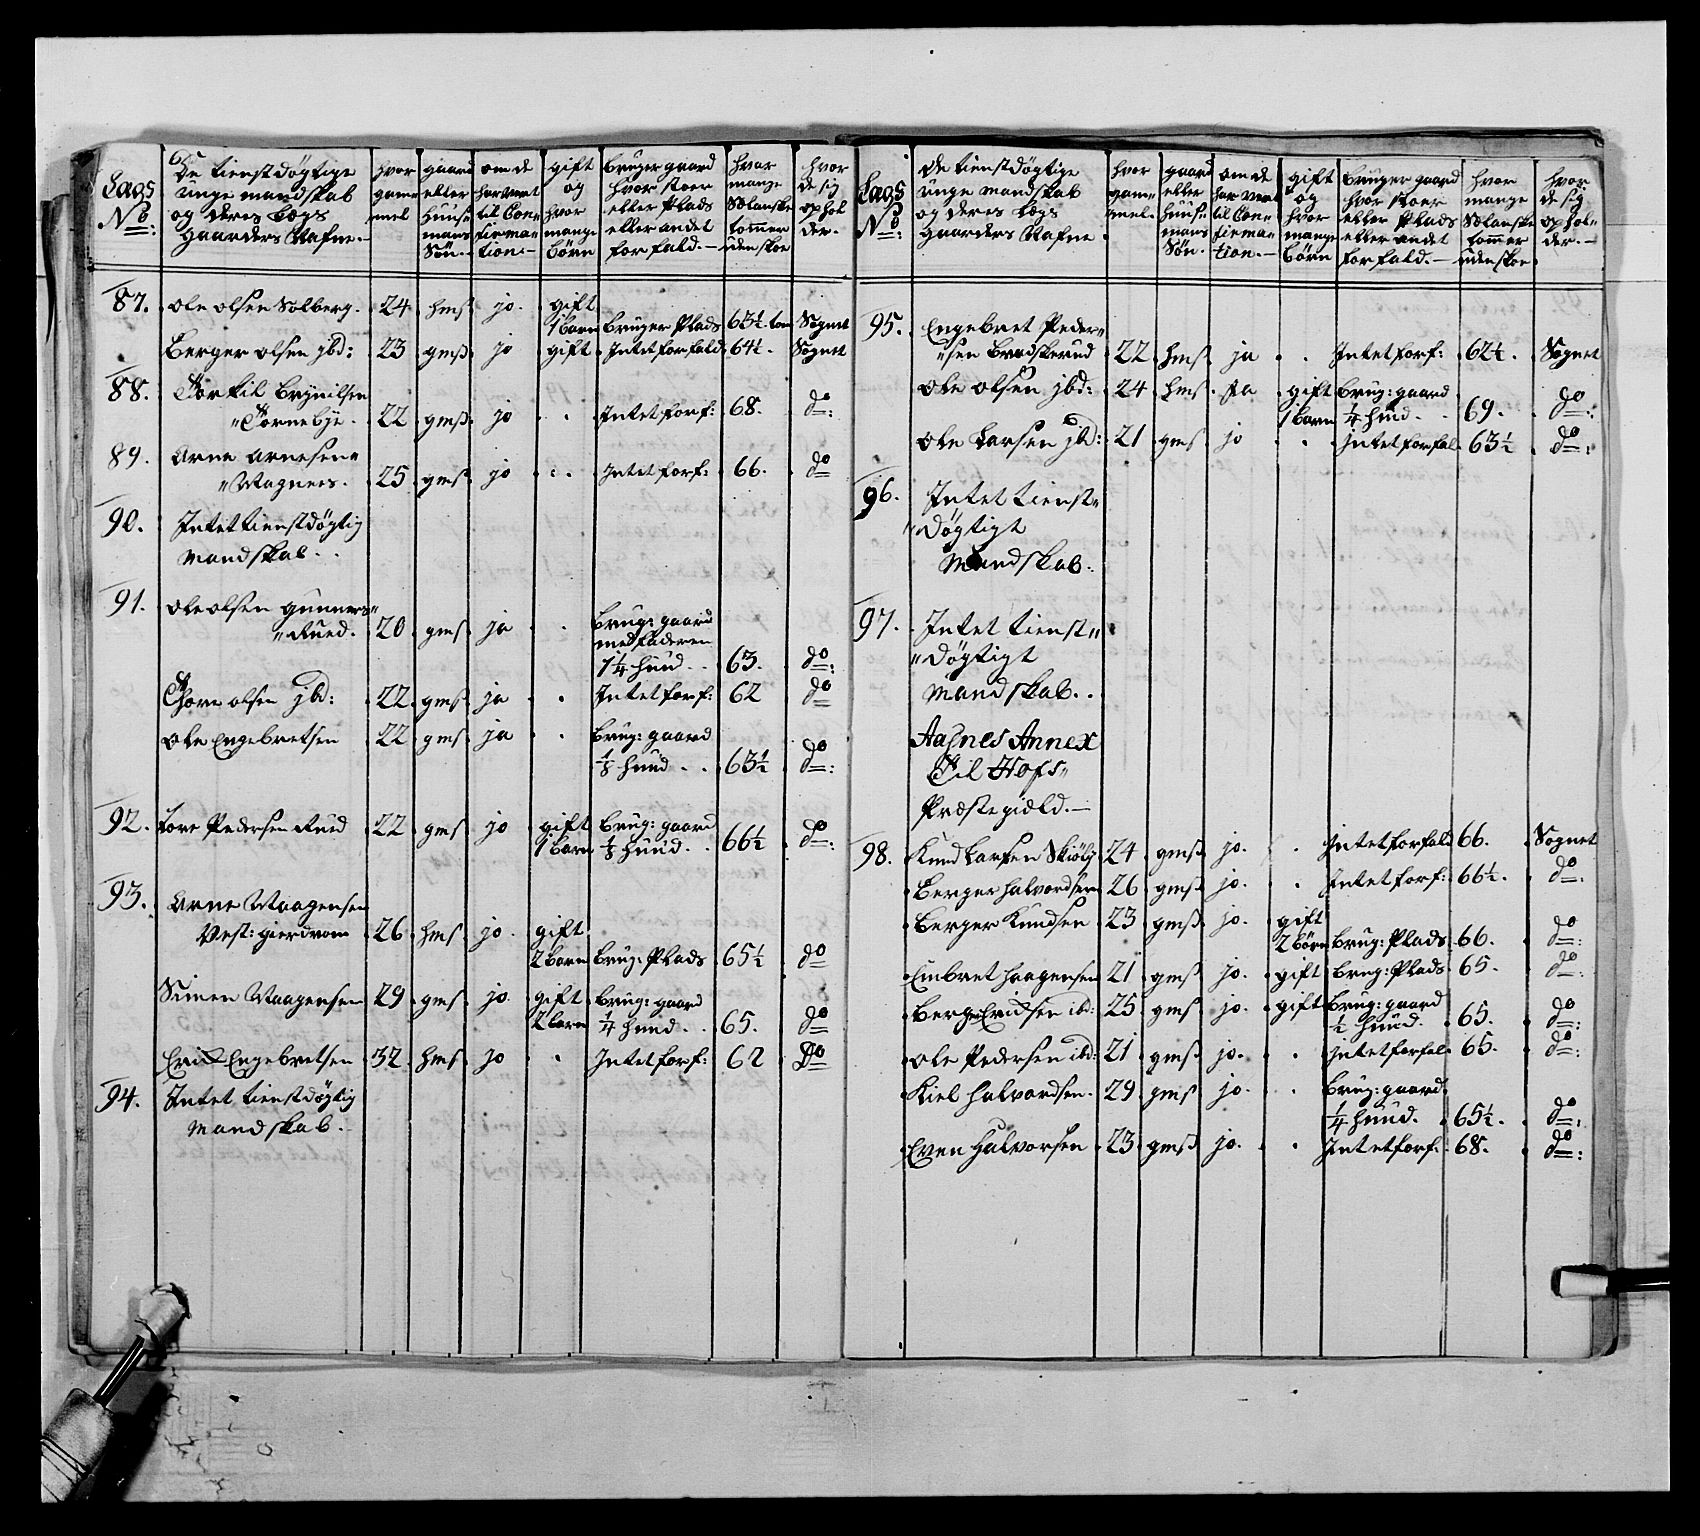 Lægs No
De tienstdøgtige unge mandskab og deres Lægs gaarders Nafne.
hvor gammel
gaard eller huusmans Søn.
om de har vært til Confirmation
gift og hvor mange børn
bruger gaard hvor stoer eller Plads eller andet forfald.
hvor mange Sælanske tommer uden skoe
hvor de sig opholder.
87. Ole olsen Solberg. 24 hmß jo. gift
1 barn bruger Plads 63½ tom Sognet
Berger olsen jbd: 23 gmß jo gift Intet forfald 64½. Sognet
88. Torkil brynilsen
Tornebye. 22 gmß jo Intet forf: 68. do
89. Arne arnesen
25 gmß jo Intet forf: 66. do
90. Intet tienstdøgtig
Mandskab.
91. Ole olsen gunners
Rued. 20 gmß ja brug: gaard
med faderen
1¼ huud. 63. do
Thore olsen jbd: 22 gmß ja Intet forf: 62 do
Ole Engebretsen 22 gmß ja brug: gaard
⅓ huud. 63½ do
92. Tore Pedersen Rued 22 gmß jo gift brug: gaard
1 barn ⅓ huud. 66½ do
93. Arne Waagensen
Vest: gierdrom 26 hmß jo gift
2 børn brug: Plads 65½ do
Simen Waagensen 29 gmß jo. gift brug: gaard
2 børn ¼ huud. 65. do
Erik Engebretsen 32 hmß jo Intet forf: 62 Do
94. Intet tienstdøgtig
Mandskab.
Lægs No
De tienstdøgtige unge mandskab og deres Lægs gaarders Nafne.
hvor gammel.
gaard eller huusmans Søn.
om de har vært til Confirmation.
gift og hvor mange børn
bruger gaard hvor stoer eller Plads eller andet forfald.
hvor mange Sælanske tommer uden skoe.
hvor de sig opholder.
95. Engebret Peder
sen bradskerud 22 hmß ja Intet forf: 62½. Sognet
Ole olsen jbd: 24 hmß Ja gift brug: gaard
1 barn ¼ huud. 69. do
Ole Larsen jbd: 21 gmß jo Intet forfal 63½ do
96. Intet tienst
døgtigt
Mandskab.
97. Intet tienst
døgtigt
Mandskab.
Aasnes Annex
Til Hofs
Præstegield.
98. Knud Larsen Skiølg 24 gmß jo. Intet forfald 66. Sognet
Berger halvordsen 26 gmß jo. Intet forf: 66½. do
Berger Knudsen 23 gmß jo. gift
2 børn brug: Plads 66. do
Embret haagensen 21 gmß jo. gift brug: Plads 65. do
Berger Eridsen ibd: 25 gmß jo. gift brug: gaard
½ huud. 65. do
Ole Pedersen ibd: 21 gmß jo. Intet forfal 65. do
Kiel halvordsen. 29 gmß jo. brug: gaard
¼ huud. 65½. do
Even Halvorsen 23 gmß jo. Intet forf: 68. do